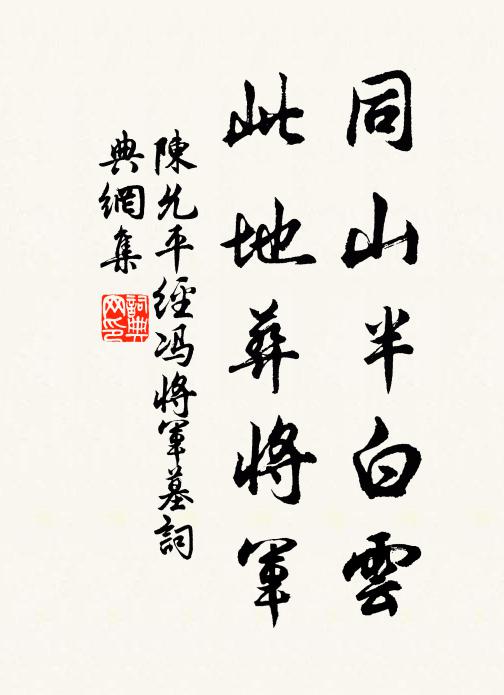 同山半白雲
此地葬將軍
陳允平經冯將軍墓詞
典網集
詞典
网印